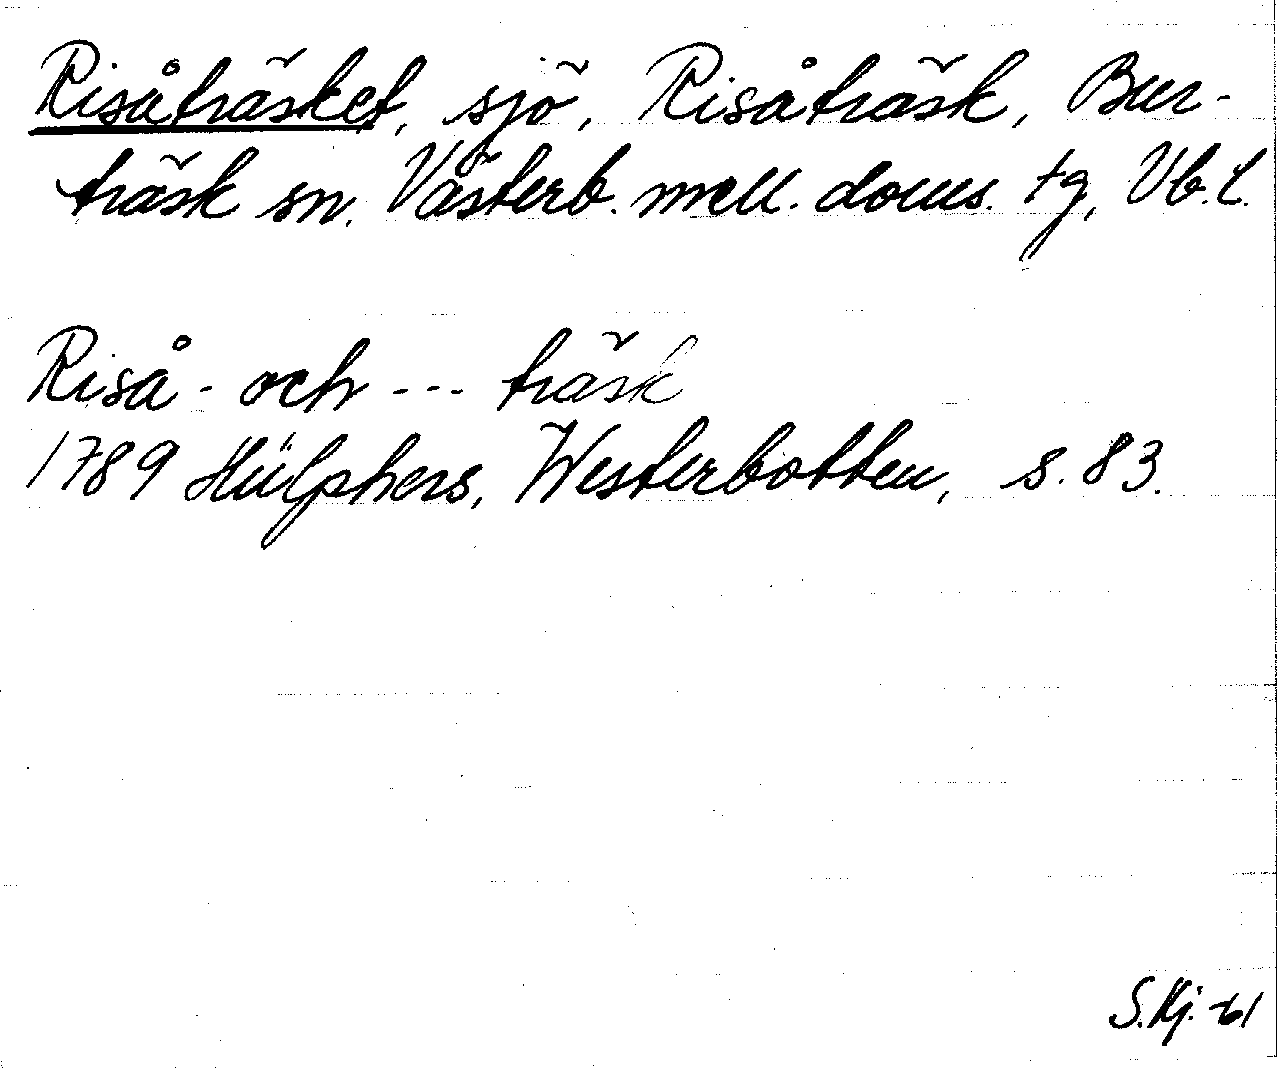 Risåträsket, sjö, Risåträsk, Bur-
träsk sn. Västerb. mell. doms. tg, Vb. l.
Riså - och --- träsk
1789 Hülphers, Westerbotten, s. 83.
S.Kj. -61